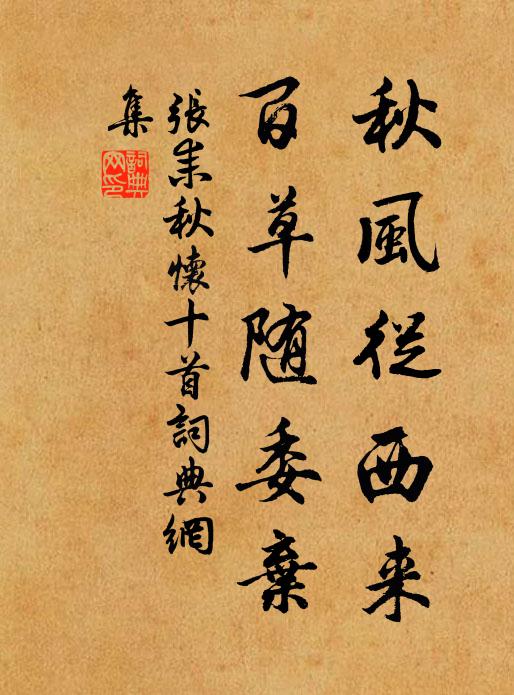 秋風從西来
百草随委棄
張耒秋懷十首詞典網
集
詞典
网印